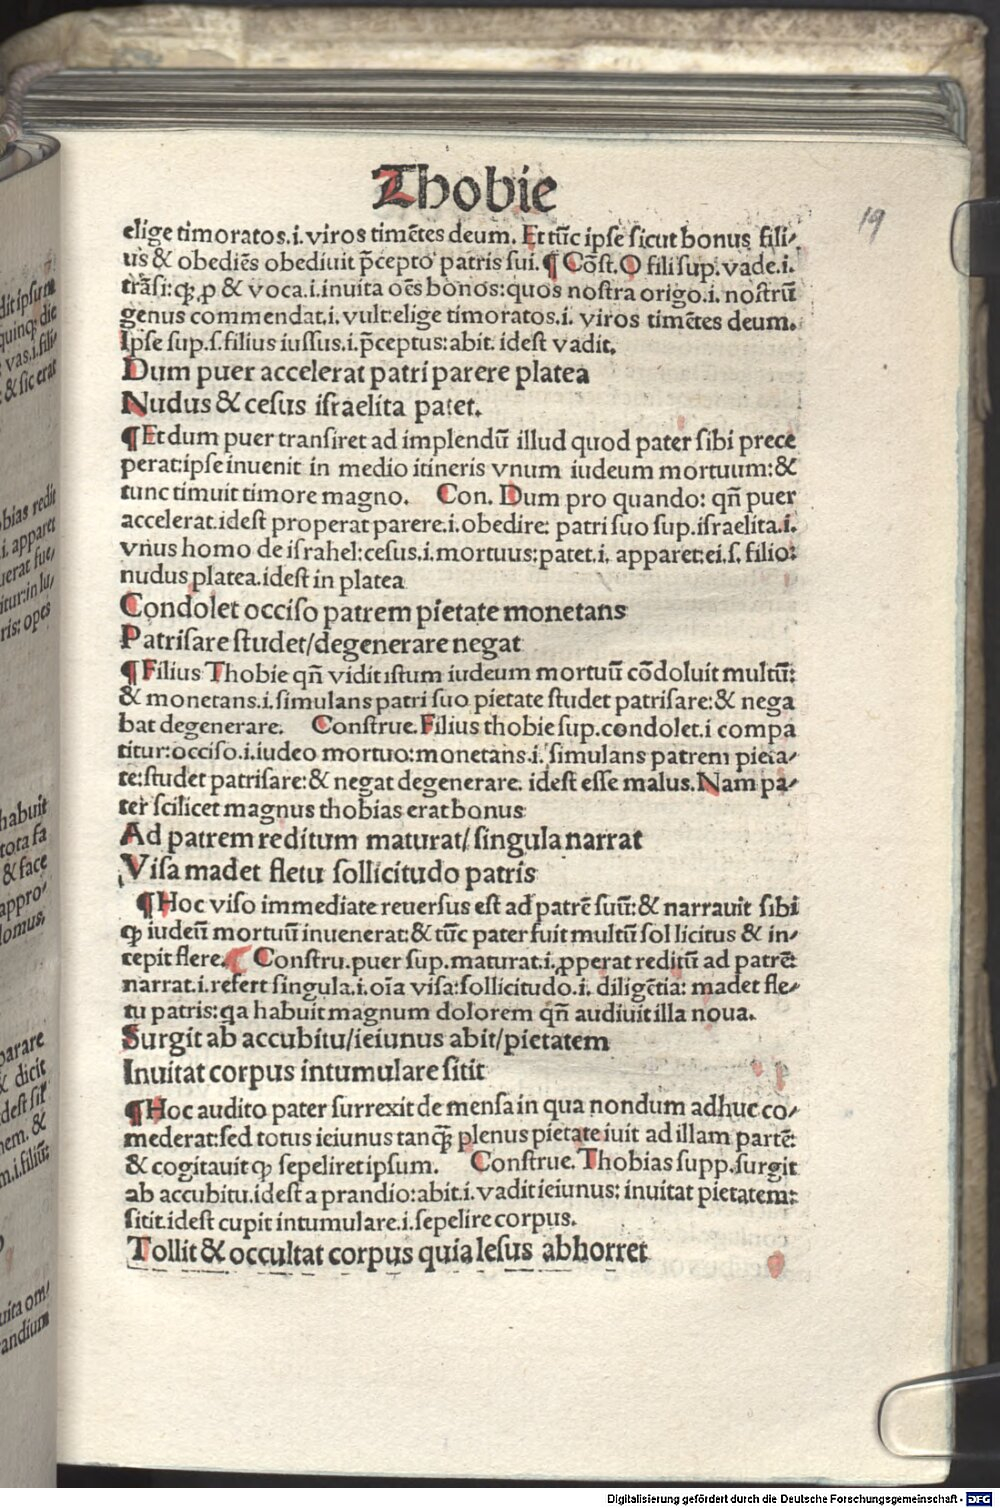 Thobie
19
elige timoratos.i.viros timētes deum. Et tūc ipse sicut bonus fili⸗
us & obediēs obediuit p̄cepto patris sui.¶ Cōst.O fili sup.vade.i.
trāsi:qꝫ,p & voca.i.inuita oēs bonos:quos nostra origo.i. nostrū
genus commendat.i. vult:elige timoratos.i. viros timētes deum.
Ipse sup.s.filius iussus.i.p̄ceptus:abit. idest vadit.
Dum puer accelerat patri parere platea
Nudus & cesus israelita patet.
¶Et dum puer transiret ad implendū illud quod pater sibi prece
perat:ipse inuenit in medio itineris vnum iudeum mortuum:&
tunc timuit timore magno. Con. Dum pro quando: qn̄ puer
accelerat.idest properat parere.i.obedire: patri suo sup.israelita.i.
vnus homo de israhel:cesus.i.mortuus:patet.i. apparet:ei.s.filio:
nudus platea.idest in platea
Condolet occiso patrem pietate monetans
Patrisare studet/degenerare negat
¶Filius Thobie qn̄ vidit istum iudeum mortuū cōdoluit multū:
& monetans.i.simulans patri suo pietate studet patrisare:& nega
bat degenerare. Construe.Filius thobie sup.condolet.i compa
titur:occiso.i.iudeo mortuo:monetans.i. simulans patrem pieta⸗
te:studet patrisare:& negat degenerare. idest esse malus.Nam pa⸗
ter scilicet magnus thobias erat bonus
Ad patrem reditum maturat/singula narrat
Visa madet fletu sollicitudo patris
¶Hoc viso immediate reuersus est ad patrē suū:& narrauit sibi
ꝙ iudeū mortuū inuenerat:& tūc pater fuit multū sollicitus & in⸗
cepit flere.¶ Constru.puer sup.maturat.i.ꝓperat reditū ad patrē:
narrat.i.refert singula.i.oīa visa:sollicitudo.i. diligētia: madet fle⸗
tu patris:qa habuit magnum dolorem qn̄ audiuit illa noua.
Surgit ab accubitu/ieiunus abit/pietatem
Inuitat corpus intumulare sitit
¶Hoc audito pater surrexit de mensa in qua nondum adhuc co⸗
mederat:sed totus ieiunus tanqꝫ plenus pietate iuit ad illam partē:
& cogitauit ꝙ sepeliret ipsum. Construe.Thobias supp.surgit
ab accubitu.idest a prandio:abit.i.vadit ieiunus: inuitat pietatem:
sitit.idest cupit intumulare.i.sepelire corpus.
Tollit & occultat corpus quia lesus abhorret
Digitalisierung gefördert durch die Deutsche Forschungsgemeinschaft - DFG